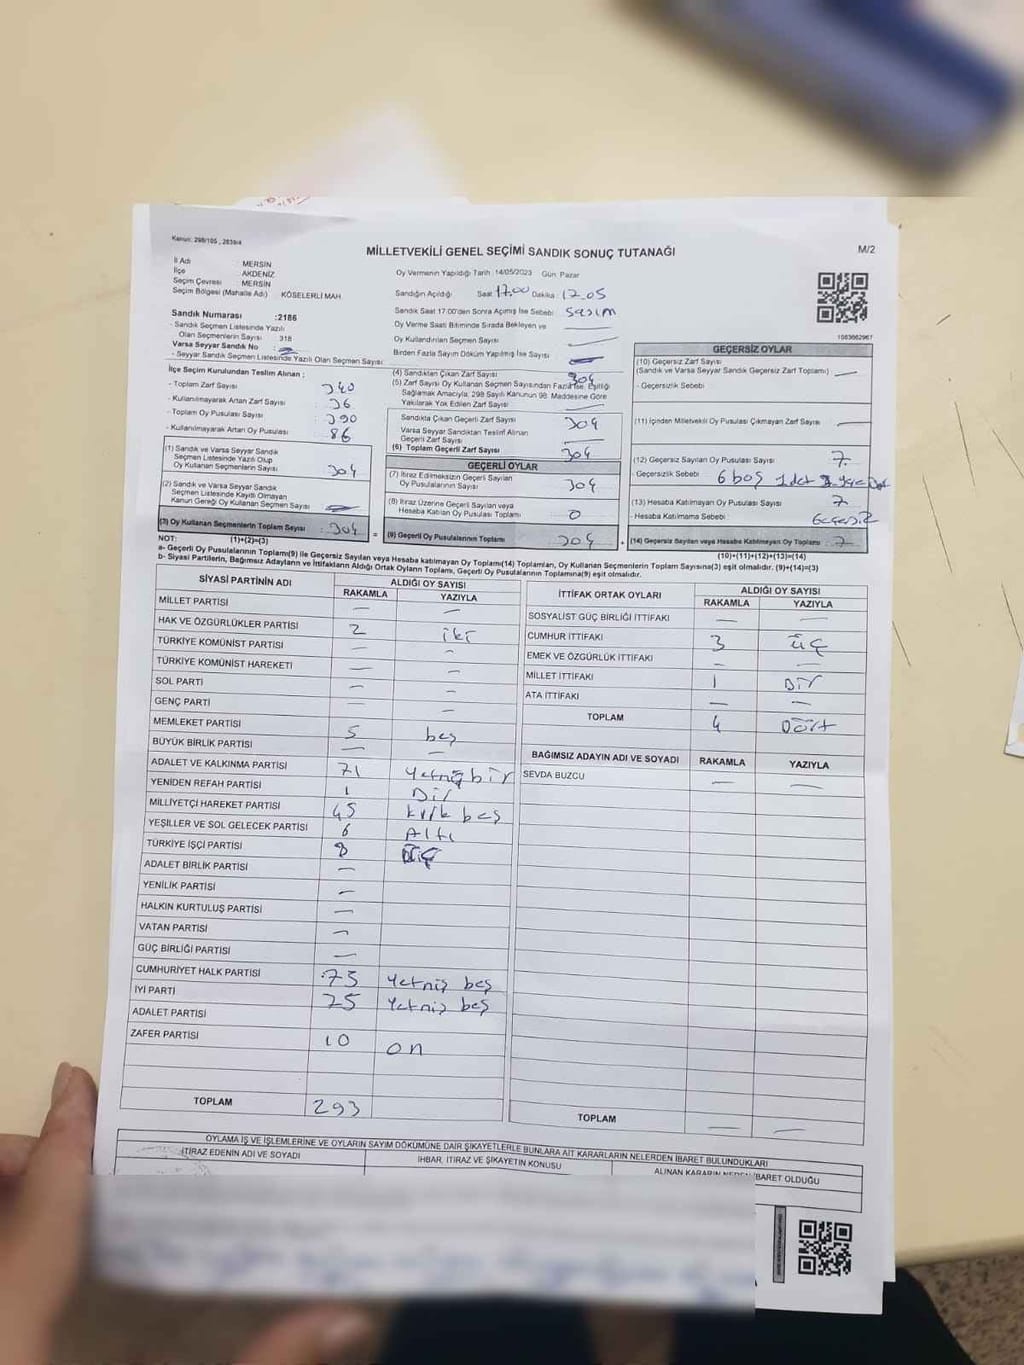 Kanun: 298/105 , 2839/4
MİLLETVEKİLİ GENEL SEÇİMİ SANDIK SONUÇ TUTANAĞI
M/2
İl Adı : MERSİN
İlçe : AKDENİZ
Seçim Çevresi : MERSİN
Seçim Bölgesi (Mahalle Adı) : KÖSELERLİ MAH.
Oy Vermenin Yapıldığı Tarih :14/05/2023 Gün: Pazar
Sandığın Açıldığı Saat 17.00 Dakika : 17.05
Sandık Saat 17:00'den Sonra Açımış İse Sebebi : sayım
Oy Verme Saati Bitiminde Sırada Bekleyen ve
Oy Kullandırılan Seçmen Sayısı
Birden Fazla Sayım Döküm Yapılmış İse Sayısı
1083662967
Sandık Numarası :2186
- Sandık Seçmen Listesinde Yazılı
Olan Seçmenlerin Sayısı : 318
Varsa Seyyar Sandık No :
- Seyyar Sandık Seçmen Listesinde Yazılı Olan Seçmen Sayısı
İlçe Seçim Kurulundan Teslim Alınan ;
- Toplam Zarf Sayısı : 340
- Kullanılmayarak Artan Zarf Sayısı : 36
- Toplam Oy Pusulası Sayısı : 390
- Kullanılmayarak Artan Oy Pusulası : 86
(1) Sandık ve Varsa Seyyar Sandık
Seçmen Listesinde Yazılı Olup
Oy Kullanan Seçmenlerin Sayısı : 304
(2) Sandık ve Varsa Seyyar Sandık
Seçmen Listesinde Kayıtlı Olmayan
Kanun Gereği Oy Kullanan Seçmen Sayısı
(3) Oy Kullanan Seçmenlerin Toplam Sayısı : 304
(4) Sandıktan Çıkan Zarf Sayısı 304
(5) Zarf Sayısı Oy Kullanan Seçmen Sayısından Fazla İse, Eşitliği
Sağlamak Amacıyla, 298 Sayılı Kanunun 98. Maddesine Göre
Yakılarak Yok Edilen Zarf Sayısı
Sandıkta Çıkan Geçerli Zarf Sayısı : 304
Varsa Seyyar Sandıktan Teslim Alınan
Geçerli Zarf Sayısı
(6) Toplam Geçerli Zarf Sayısı : 304
GEÇERLİ OYLAR
(7) İtiraz Edilmeksizin Geçerli Sayılan
Oy Pusulalarının Sayısı : 304
(8) İtiraz Üzerine Geçerli Sayılan veya
Hesaba Katılan Oy Pusulaları Toplamı : 0
= (9) Geçerli Oy Pusulalarının Toplamı : 304
GEÇERSİZ OYLAR
(10) Geçersiz Zarf Sayısı
(Sandık ve Varsa Seyyar Sandık Geçersiz Zarf Toplamı) :
- Geçersizlik Sebebi
(11) İçinden Milletvekili Oy Pusulası Çıkmayan Zarf Sayısı
(12) Geçersiz Sayılan Oy Pusulası Sayısı : 7
- Geçersizlik Sebebi : 6 boş
(13) Hesaba Katılmayan Oy Pusulası Sayısı : 7
- Hesaba Katılmama Sebebi : Geçersiz
+ (14) Geçersiz Sayılan veya Hesaba Katılmayan Oy Toplamı : 7
(10)+(11)+(12)+(13)=(14)
NOT: (1)+(2)=(3)
a- Geçerli Oy Pusulalarının Toplamı(9) ile Geçersiz Sayılan veya Hesaba katılmayan Oy Toplamı(14) Toplamları, Oy Kullanan Seçmenlerin Toplam Sayısına(3) eşit olmalıdır. (9)+(14)=(3)
b- Siyasi Partilerin, Bağımsız Adayların ve İttifakların Aldığı Ortak Oyların Toplamı, Geçerli Oy Pusulalarının Toplamına(9) eşit olmalıdır.
SİYASİ PARTİNİN ADI ALDIĞI OY SAYISI
RAKAMLA YAZIYLA
MİLLET PARTİSİ — —
HAK VE ÖZGÜRLÜKLER PARTİSİ 2 iki
TÜRKİYE KOMÜNİST PARTİSİ — —
TÜRKİYE KOMÜNİST HAREKETİ — —
SOL PARTİ — —
GENÇ PARTİ — —
MEMLEKET PARTİSİ 5 beş
BÜYÜK BİRLİK PARTİSİ — —
ADALET VE KALKINMA PARTİSİ 71 Yetmiş bir
YENİDEN REFAH PARTİSİ 1 Bir
MİLLİYETÇİ HAREKET PARTİSİ 45 kırk beş
YEŞİLLER VE SOL GELECEK PARTİSİ 6 Altı
TÜRKİYE İŞÇİ PARTİSİ
ADALET BİRLİK PARTİSİ —
YENİLİK PARTİSİ —
HALKIN KURTULUŞ PARTİSİ —
VATAN PARTİSİ —
GÜÇ BİRLİĞİ PARTİSİ —
CUMHURİYET HALK PARTİSİ 75 Yetmiş beş
İYİ PARTİ 75 Yetmiş beş
ADALET PARTİSİ
ZAFER PARTİSİ 10 on
TOPLAM 293
İTTİFAK ORTAK OYLARI ALDIĞI OY SAYISI
RAKAMLA YAZIYLA
SOSYALİST GÜÇ BİRLİĞİ İTTİFAKI — —
CUMHUR İTTİFAKI 3 üç
EMEK VE ÖZGÜRLÜK İTTİFAKI — —
MİLLET İTTİFAKI 1 Bir
ATA İTTİFAKI — —
TOPLAM 4 Dört
BAĞIMSIZ ADAYIN ADI VE SOYADI RAKAMLA YAZIYLA
SEVDA BUZCU — —
TOPLAM — —
OYLAMA İŞ VE İŞLEMLERİNE VE OYLARIN SAYIM DÖKÜMÜNE DAİR ŞİKAYETLERLE BUNLARA AİT KARARLARIN NELERDEN İBARET BULUNDUKLARI
İTİRAZ EDENİN ADI VE SOYADI
İHBAR, İTİRAZ VE ŞİKAYETİN KONUSU
ALINAN KARARIN NEDEN İBARET OLDUĞU